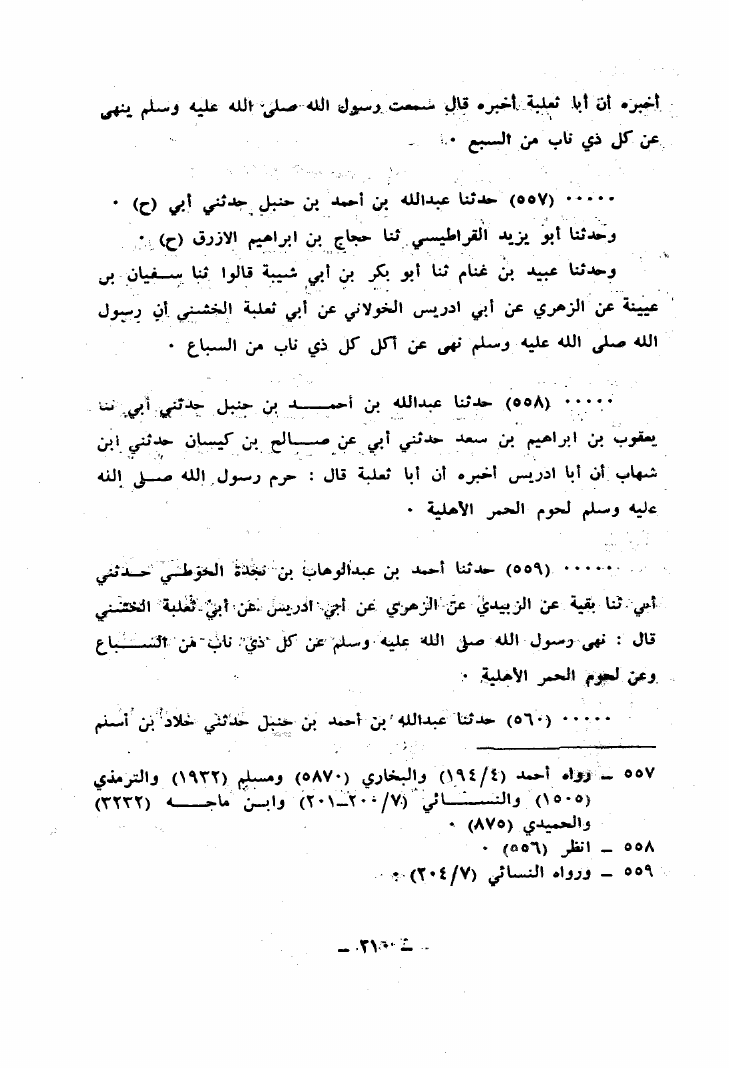 أخبره أن أبا ثعلبة أخبره قال سمعت رسول الله صلى الله عليه وسلم ينهى
عن كل ذي ناب من السبع ٠
٠٠٠٠٠ (٥٥٧) حدثنا عبدالله بن أحمد بن حنبل حدثني أبي (ح) ٠
وحدثنا أبو يزيد القراطيسي ثنا حجاج بن ابراهيم الازرق (ح) ٠
وحدثنا عبيد بن غنام ثنا أبو بكر بن أبي شيبة قالوا ثنا سفيان بن
عيينة عن الزهري عن أبي ادريس الخولاني عن أبي ثعلبة الخشني أن رسول
الله صلى الله عليه وسلم نهى عن أكل كل ذي ناب من السباع ٠
٠٠٠٠٠ (٥٥٨) حدثنا عبدالله بن أحمد بن حنبل حدثني أبي ثنا
يعقوب بن ابراهيم بن سعد حدثني أبي عن صالح بن كيسان حدثني ابن
شهاب أن أبا ادريس أخبره أن أبا ثعلبة قال : حرم رسول الله صلى الله
عليه وسلم لحوم الحمر الأهلية ٠
٠٠٠٠٠ (٥٥٩) حدثنا أحمد بن عبدالوهاب بن نجدة الحوطي حدثني
أبي ثنا بقية عن الزبيدي عن الزهري عن أبي ادريس عن أبي ثعلبة الخشني
قال : نهى رسول الله صلى الله عليه وسلم عن كل ذي ناب من السباع
وعن لحوم الحمر الأهلية ٠
٠٠٠٠٠ (٥٦٠) حدثنا عبدالله بن أحمد بن حنبل حدثني خلاد بن أسلم
٥٥٧ ــ ورواه أحمد (١٩٤/٤) والبخاري (٥٨٧٠) ومسلم (١٩٣٢) والترمذي
(١٥٠٥) والنسائي (٢٠٠/٧ــ٢٠١) وابن ماجه (٣٢٣٢)
والحميدي (٨٧٥) ٠
٥٥٨ ــ انظر (٥٥٦) ٠
٥٥٩ ــ ورواه النسائي (٢٠٤/٧) ٠